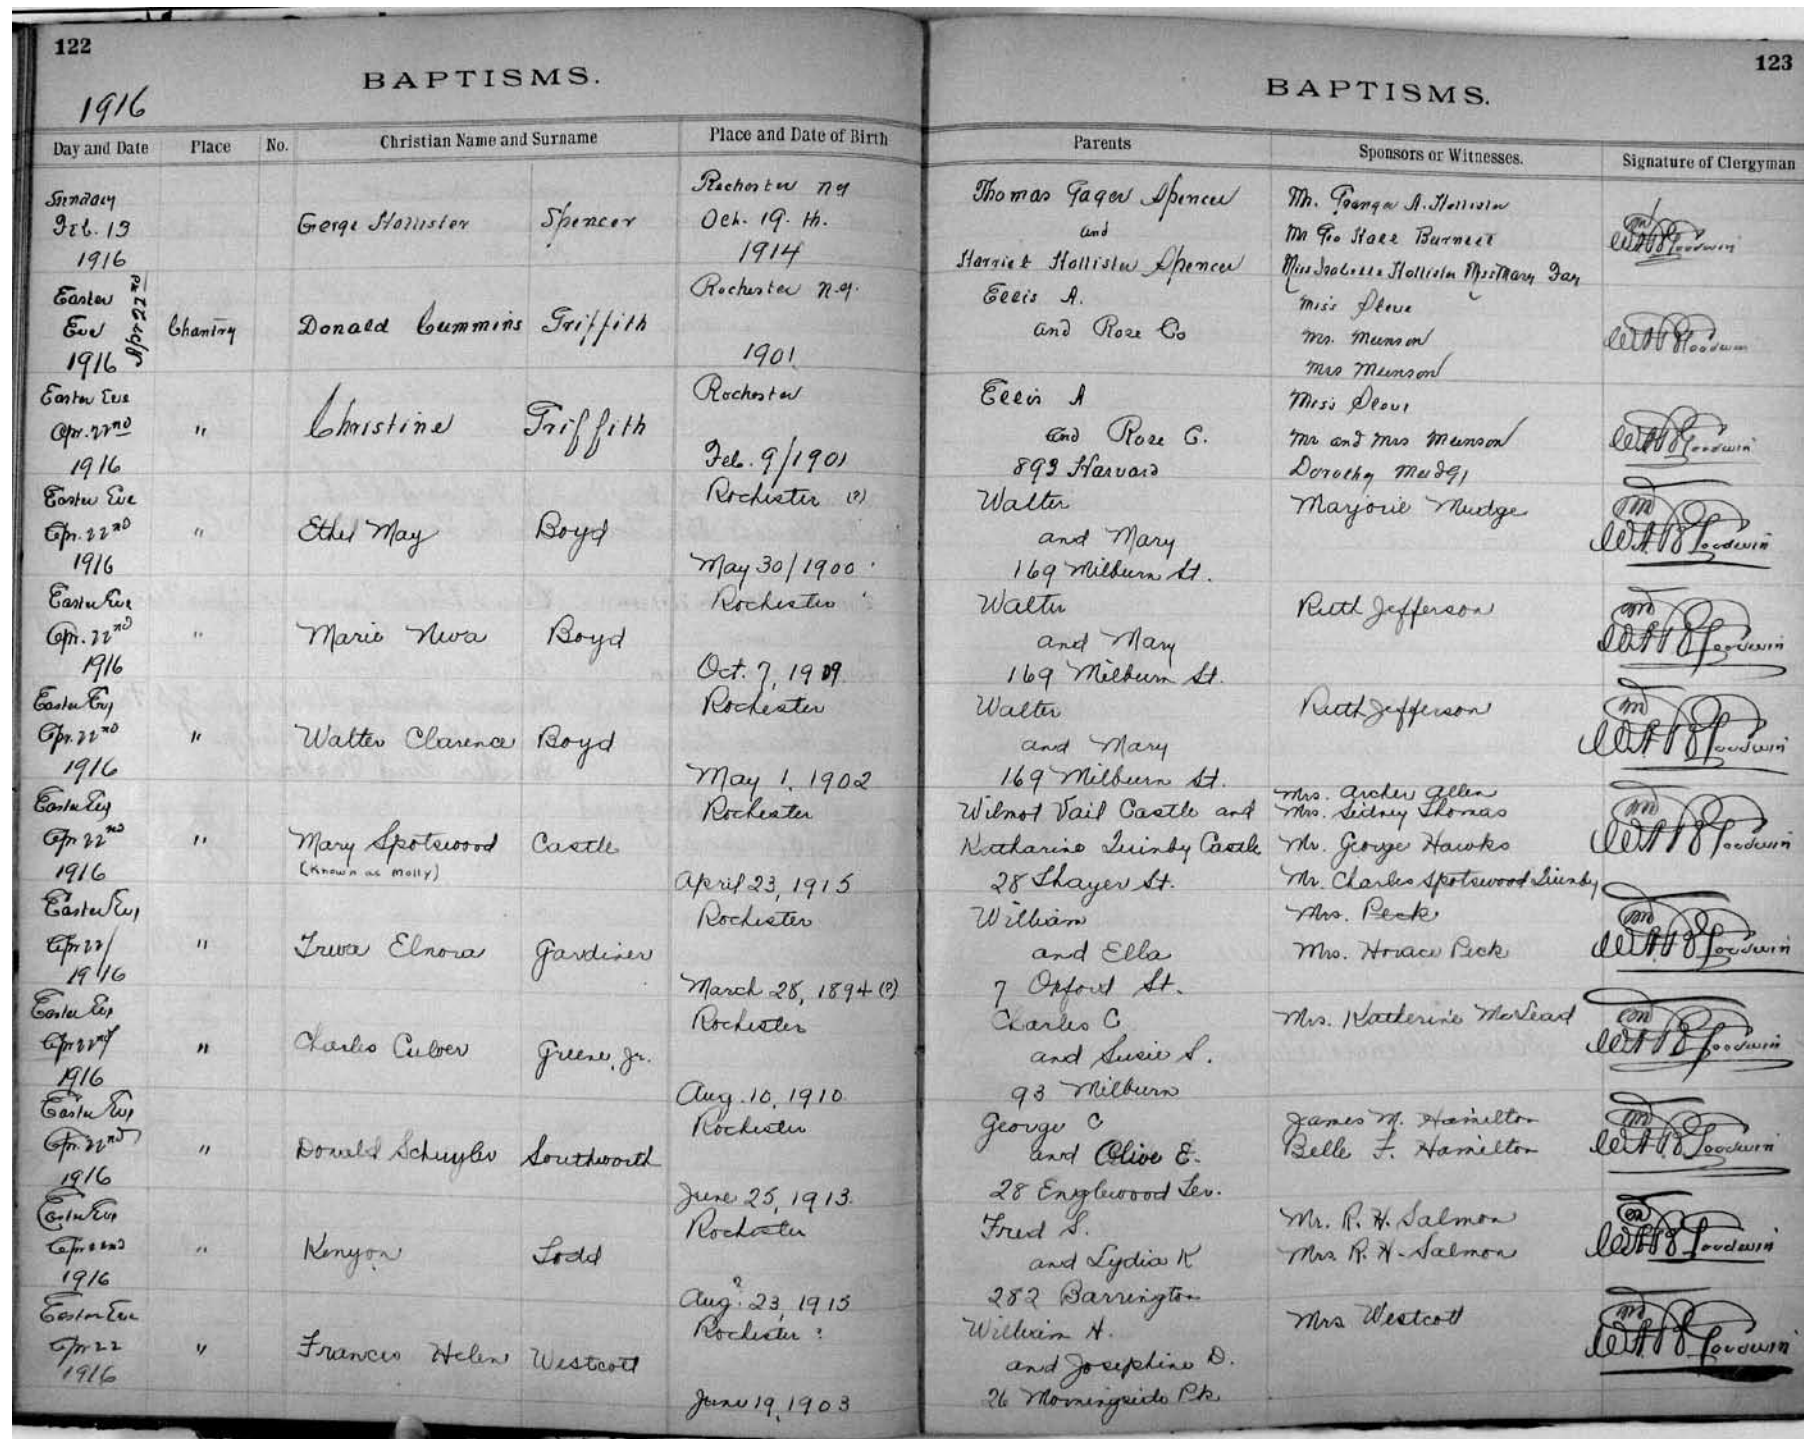 122
BAPTISMS.
1916
Day and Date Place No. Christian Name and Surname Place and Date of Birth
Sunday
Feb. 13
1916
George Hollister Spencer
Rochester NY
Oct. 19. th.
1914
Easter
Eve
1916
Apr 22nd
Chantry
Donald Cummins Griffith
Rochester N.Y.
1901
Easter Eve
Apr. 22nd
1916
"
Christine Griffith
Rochester
Feb. 9/1901
Easter Eve
Apr. 22nd
1916
"
Ethel May Boyd
Rochester (?)
May 30/1900
Easter Eve
Apr. 22nd
1916
"
Marie Boyd
Rochester
Oct. 7, 1909
Easter Eve
Apr. 22nd
1916
"
Walter Clarence Boyd
Rochester
May 1, 1902
Easter Eve
Apr 22nd
1916
"
Mary Spotswood Castle
(Known as Molly)
Rochester
April 23, 1915
Easter Eve
Apr 22/
1916
"
Elnora Gardiner
Rochester
March 28, 1894 (?)
Easter Eve
Apr 22nd
1916
"
Charles Culver Greene, Jr.
Rochester
Aug. 10, 1910
Easter Eve
Apr. 22nd
1916
"
Donald Schuyler Southworth
Rochester
June 25, 1913.
Easter Eve
Apr 22nd
1916
"
Kenyon Todd
Rochester
Aug.? 23, 1915
Easter Eve
Apr 22
1916
"
Frances Helen Westcott
Rochester ?
June 19, 1903
123
BAPTISMS.
Parents Sponsors or Witnesses. Signature of Clergyman
Thomas Gager Spencer
and
Harriet Hollister Spencer
Mr. Granger A. Hollister
Mr Geo Hale Burnett
Miss Isabelle Hollister Miss Mary
WAR Goodwin
Ellis A.
and Rose Co
Miss
Mr. Munson
Mrs Munson
WAR Goodwin
Ellis A
and Rose C.
893 Harvard
Miss
Mr and Mrs Munson
Dorothy
WAR Goodwin
Walter
and Mary
169 Milburn St.
Marjorie Mudge
WAR Goodwin
Walter
and Mary
169 Milburn St.
Ruth Jefferson
WAR Goodwin
Walter
and Mary
169 Milburn St.
Ruth Jefferson
WAR Goodwin
Wilmot Vail Castle and
Katharine Quinby Castle
28 Thayer St.
Mrs. Archer Allen
Mrs. Sidney Thomas
Mr. George Hawks
Mr. Charles Spotswood Quinby
WAR Goodwin
William
and Ella
7 Oxford St.
Mrs. Peck
Mrs. Horace Peck
WAR Goodwin
Charles C
and Susie S.
93 Milburn
Mrs. Katherine
WAR Goodwin
George C
and Olive E.
28 Englewood Ter.
James M. Hamilton
Belle F. Hamilton
WAR Goodwin
Fred S.
and Lydia K
282 Barrington
Mr. R. H. Salmon
Mrs. R. H. Salmon
WAR Goodwin
William H.
and Josephine D.
26 Morningside Pk
Mrs Westcott
WAR Goodwin